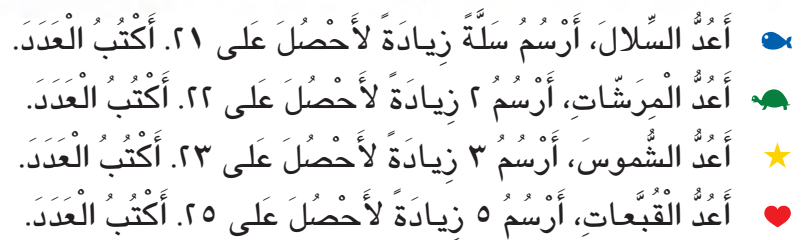 أَعُدُّ السِّلالَ، أَرْسُمُ سَلَّةً زِيادَةً لأَحْصُلَ عَلى ٢١. أَكْتُبُ الْعَدَدَ.
أَعُدُّ الْمِرَشّاتِ، أَرْسُمُ ٢ زِيادَةً لأَحْصُلَ عَلى ٢٢. أَكْتُبُ الْعَدَدَ.
أَعُدُّ الشُّموسَ، أَرْسُمُ ٣ زِيادَةً لأَحْصُلَ عَلى ٢٣. أَكْتُبُ الْعَدَدَ.
أَعُدُّ الْقُبَّعاتِ، أَرْسُمُ ٥ زِيادَةً لأَحْصُلَ عَلى ٢٥. أَكْتُبُ الْعَدَدَ.